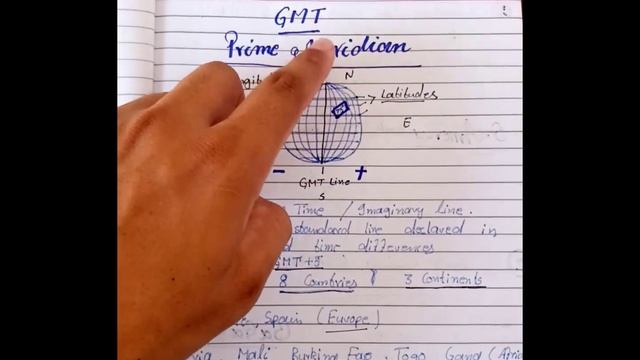 GMT
Prime Meridian
N
Latitudes
E
- GMT Line +
S
Time / Imaginary line.
standared line declared in
time differences
GMT+5
8 Countries 3 Continents
Spain (Europe)
Mali Burkina Fao, Togo Gana (Afri